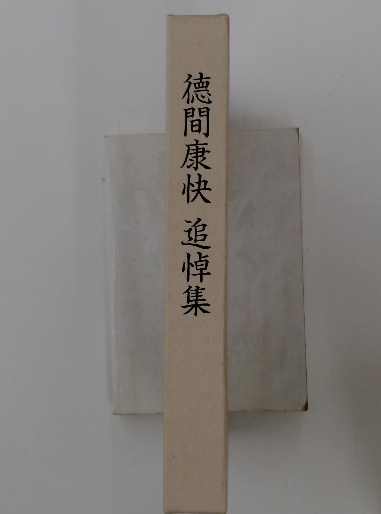 德間康快 追悼集